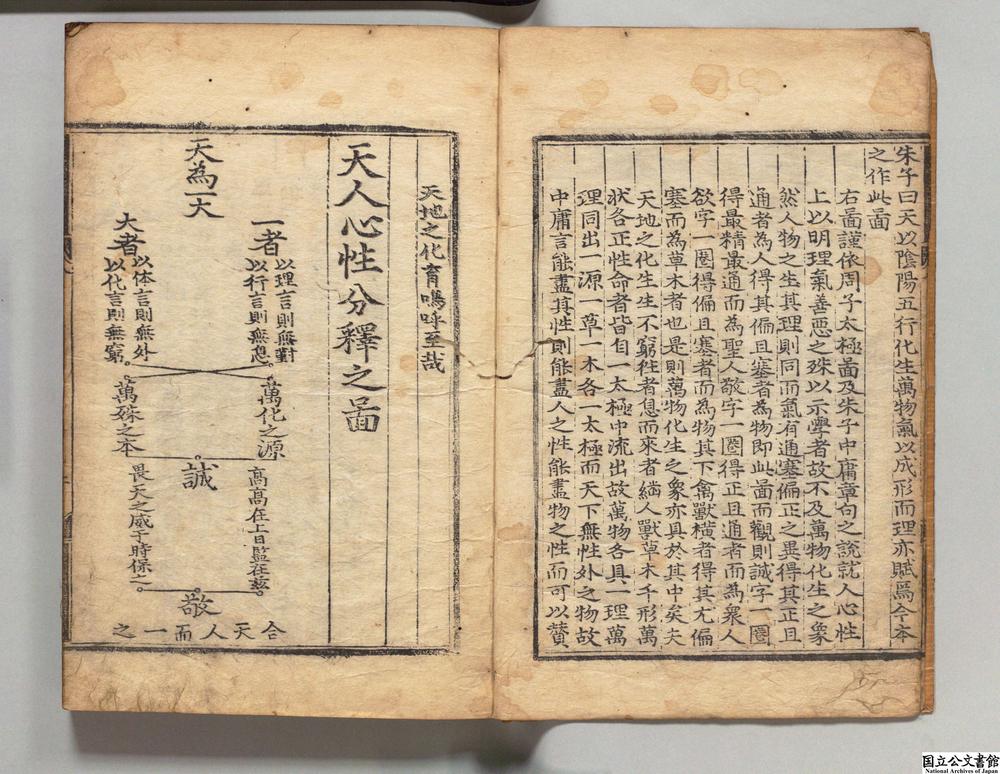 朱子曰天以陰陽五行化生萬物氣以成形而理亦賦焉今本
之作此圖
右圖謹依周子太極圖及朱子中庸章句之說就人心性
上以明理氣善惡之殊以示學者故不及萬物化生之象
然人物之生其理則同而氣有通塞偏正之異得其正且
通者為人得其偏且塞者為物即此圖而觀則誠字一圈
得最精最通而為聖人敬字一圈得正且通者而為衆人
欲字一圈得偏且塞者而為物其下禽獸橫者得其尤偏
塞而為草木者也是則萬物化生之象亦具於其中矣夫
天地之化生生不窮往者息而來者繼人獸草木千形萬
狀各正性命者皆自一太極中流出故萬物各具一理萬
理同出一源一草一木各一太極而天下無性外之物故
中庸言能盡其性則能盡人之性能盡物之性而可以贊
天地之化育嗚呼至哉
天人心性分釋之圖
天為一大
一者
以理言則無對
以行言則無息
萬化之源
大者
以体言則無外
以化言則無窮
萬殊之本
誠
高高在上日監在玆
畏天之威于時保之
敬
合天人而一之
国立公文書館
National Archives of Japan